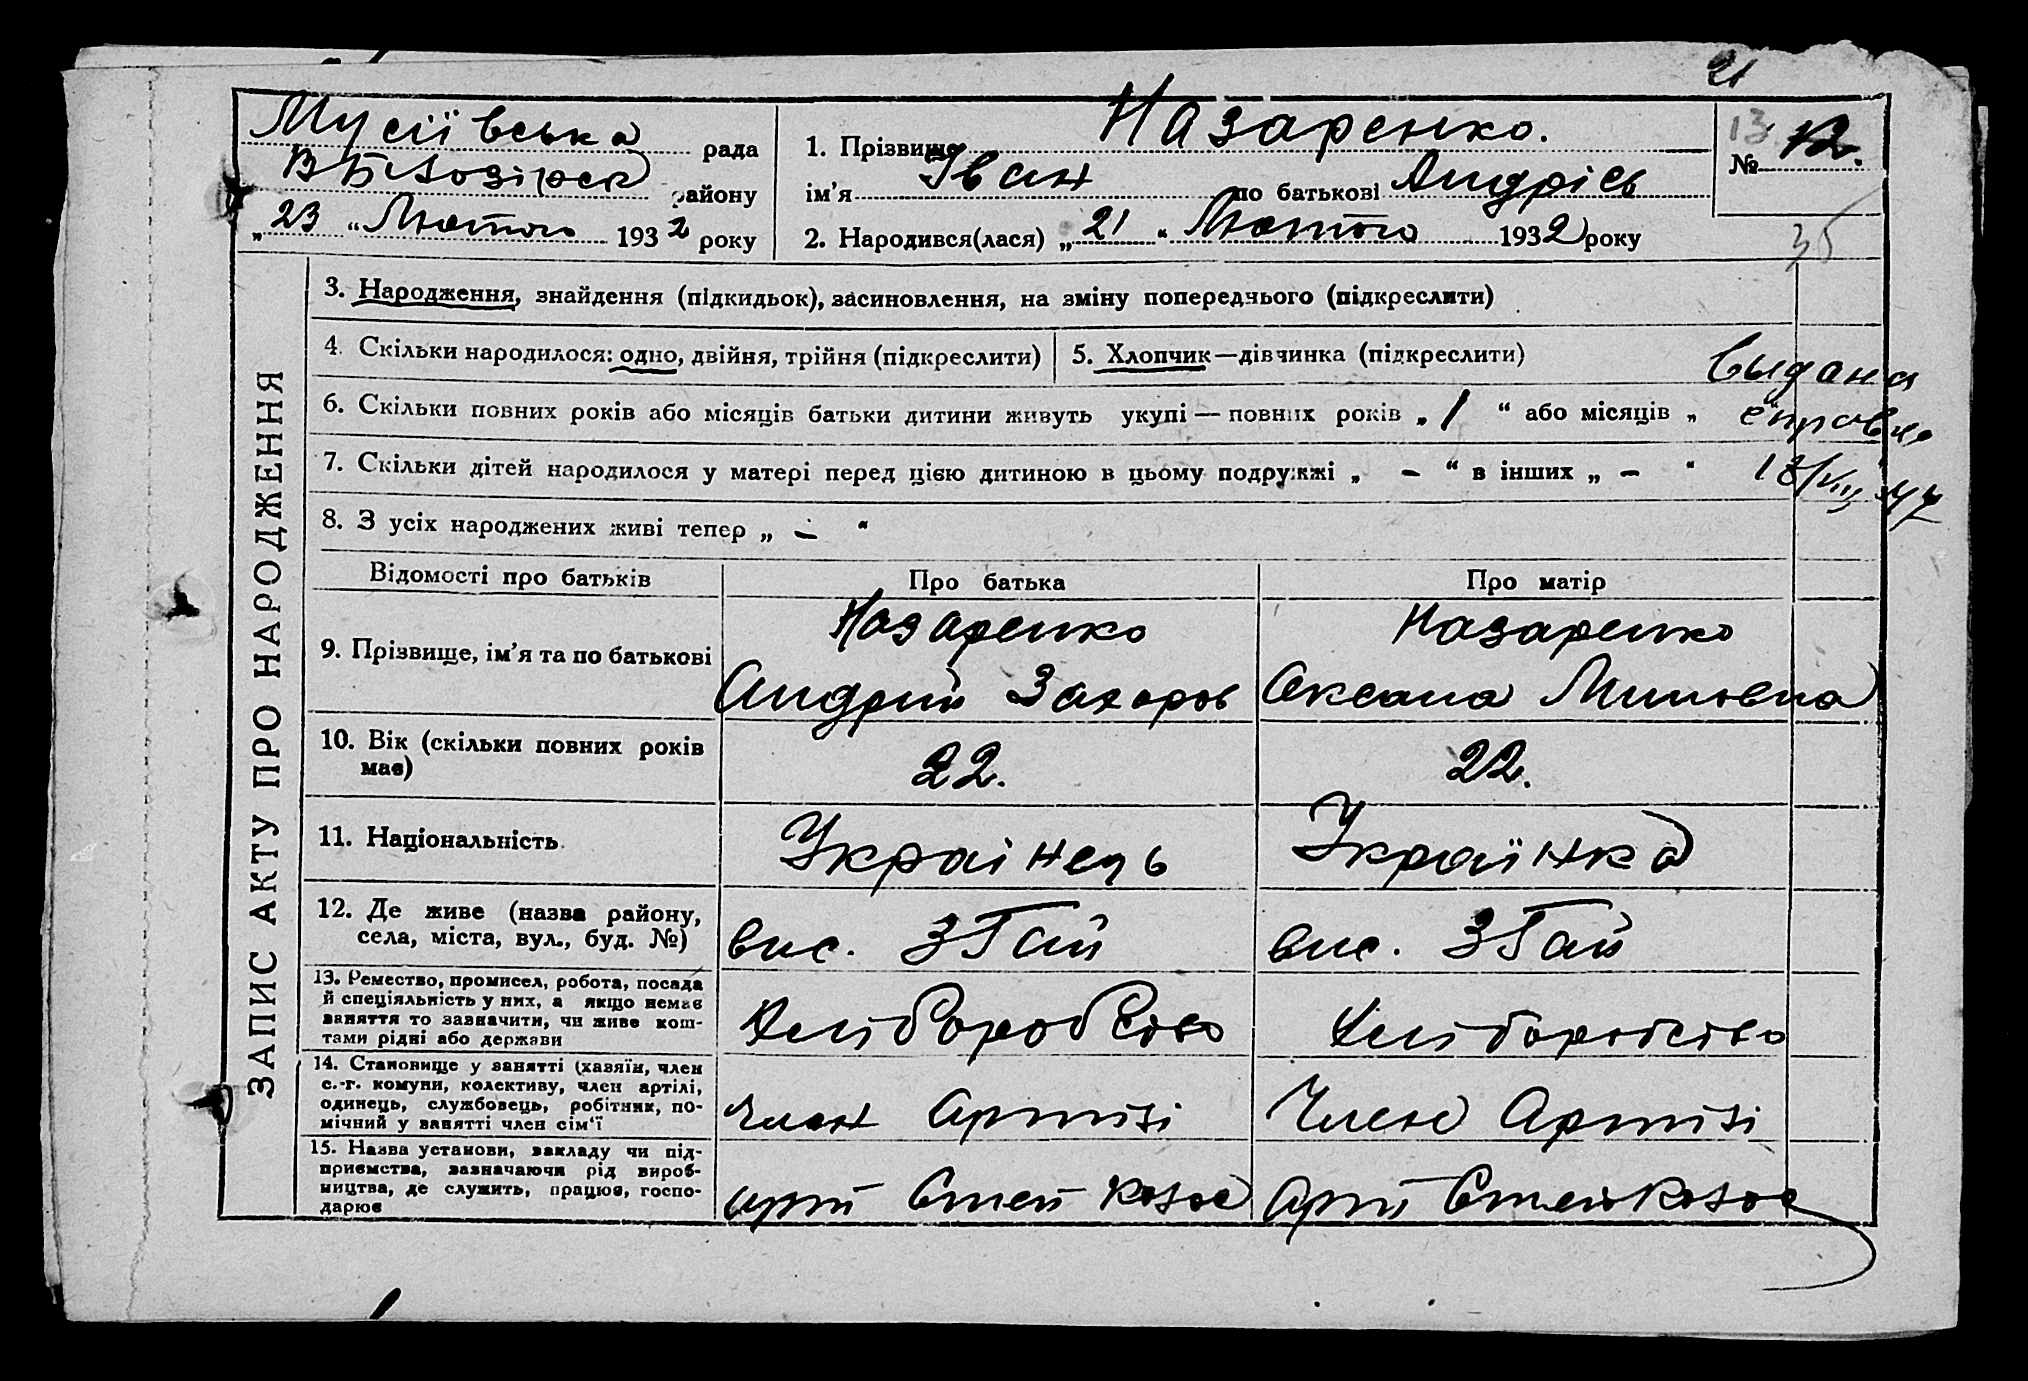 21
Мусіївська рада
ВБілозірск району
„23“ Лютого 1932 року
1. Прізвище Назаренко.
ім’я Іван по батькові Андрієв
2. Народився(лася) „21“ Лютого 1932 року
13 № 12.
35
ЗАПИС АКТУ ПРО НАРОДЖЕННЯ
3. Народження, знайдення (підкидьок), засиновлення, на зміну попереднього (підкреслити)
4. Скільки народилося: одно, двійня, трійня (підкреслити)
5. Хлопчик—дівчинка (підкреслити)
6. Скільки повних років або місяців батьки дитини живуть укупі — повних років „1“ або місяців „
7. Скільки дітей народилося у матері перед цією дитиною в цьому подружжі „ – “ в інших „ – “
8. З усіх народжених живі тепер „ – “
Выдана
справка
18/VIII 47
Відомості про батьків
Про батька
Про матір
9. Прізвище, ім’я та по батькові
Назаренко
Андрій Захаров
Назаренко
Оксана Миновна
10. Вік (скільки повних років
має)
22.
22.
11. Національність
Українець
Українка
12. Де живе (назва району,
села, міста, вул., буд. №)
вис. З Гай
вис. З Гай
13. Ремество, промисел, робота, посада
й спеціяльність у них, а якщо немає
заняття то зазначити, чи живе кош-
тами рідні або держави
Хліборобство
Хліборобство
14. Становище у занятті (хазяїн, член
с.-г. комуни, колективу, член артілі,
одинець, службовець, робітник, по-
мічний у занятті член сім‘ї
Член Артілі
Член Артілі
15. Назва установи, закладу чи під-
приємства, зазначаючи рід вироб-
ництва, де служить, працює, госпо-
дарює
арт
Арт